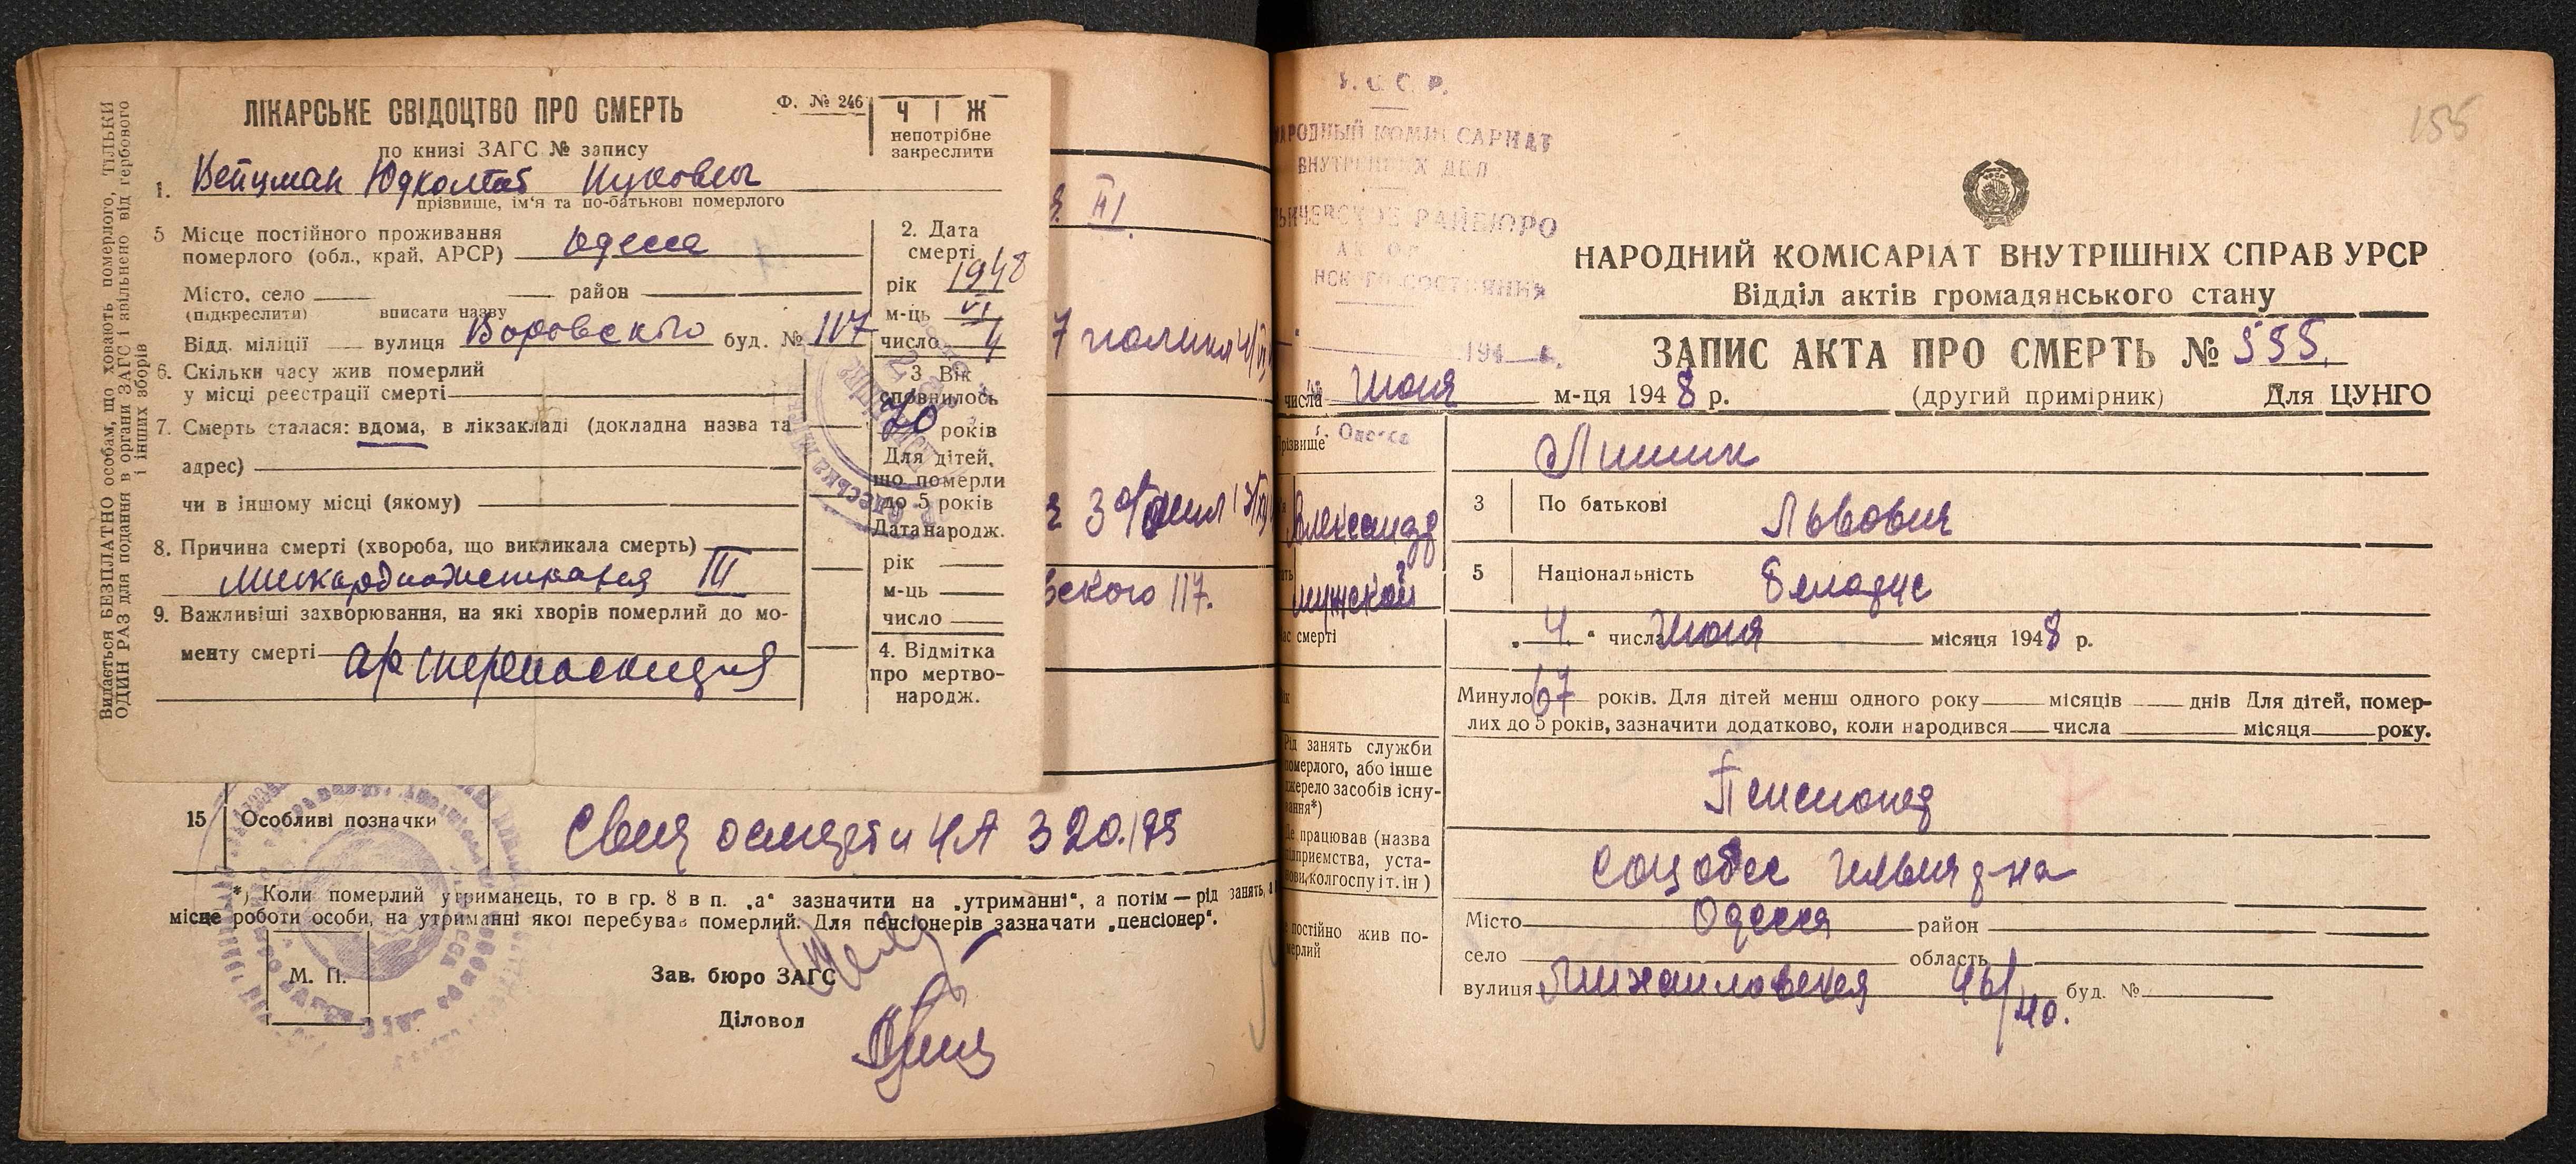 Видається БЕЗПЛАТНО особам, що ховають померлого, ТІЛЬКИ
ОДИН РАЗ для подання в органи ЗАГС і звільнено від гербового
і інших зборів
ЛІКАРСЬКЕ СВІДОЦТВО ПРО СМЕРТЬ
Ф. № 246
Ч І Ж
непотрібне
закреслити
по книзі ЗАГС № запису
1. Вейцман
прізвище, ім'я та по-батькові померлого
5 Місце постійного проживання
померлого (обл., край, АРСР) Одесса
Місто, село район
(підкреслити) вписати назву
Відд. міліції вулиця Воровского буд. № 117
6. Скільки часу жив померлий
у місці реєстрації смерті
7. Смерть сталася: вдома, в лікзакладі (докладна назва та
адрес)
чи в іншому місці (якому)
8. Причина смерті (хвороба, що викликала смерть)
III
9. Важливіші захворювання, на які хворів померлий до мо-
менту смерті
2. Дата
смерті
рік 1948
м-ць VI
число 4
3 Вік
сповнилось
70 років
Для дітей,
що померли
до 5 років
Дата народж.
рік
м-ць
число
4. Відмітка
про мертво-
народж.
III.
ского 117.
15 Особливі позначки
320.175
*) Коли померлий утриманець, то в гр. 8 в п. „а" зазначити на „утриманні", а потім — рід занять, а
місце роботи особи, на утриманні якої перебував померлий. Для пенсіонерів зазначати „пенсіонер".
М. П.
Зав. бюро ЗАГС
Діловод
У. С. С. Р.
НАРОДНЫЙ КОМИССАРИАТ
ВНУТРЕННИХ ДЕЛ
РАЙБЮРО
АКТОВ
СОСТОЯНИЯ
194 г.
г. Одесса
155
НАРОДНИЙ КОМІСАРІАТ ВНУТРІШНІХ СПРАВ УРСР
Відділ актів громадянського стану
ЗАПИС АКТА ПРО СМЕРТЬ № 555.
числа Июня м-ця 1948 р. (другий примірник) Для ЦУНГО
Прізвище
Александр
3 По батькові Львович
мужской
5 Національність
час смерті „4" числа Июня місяця 1948 р.
Минуло 67 років. Для дітей менш одного року місяців днів Для дітей, помер-
лих до 5 років, зазначити додатково, коли народився числа місяця року.
Рід занять служби
померлого, або інше
джерело засобів існу-
вання*)
Пенсионер
Де працював (назва
підприємства, уста-
нови, колгоспу і т. ін)
Собес
постійно жив по-
мерлий
Місто Одесса район
село область
вулиця Михайловская 46/40. буд. №